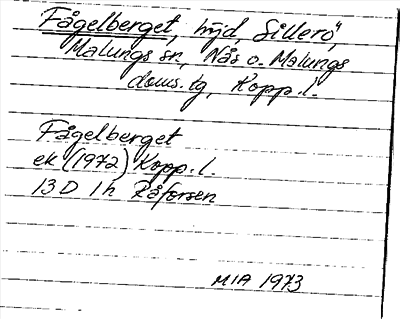 Fågelberget, höjd, Sillerö,
Malungs sn., Nås o. Malungs
doms. tg, Kopp. l.
Fågelberget
ek (1972) Kopp. l.
13 D 1 h Råforsen
MIA 1973